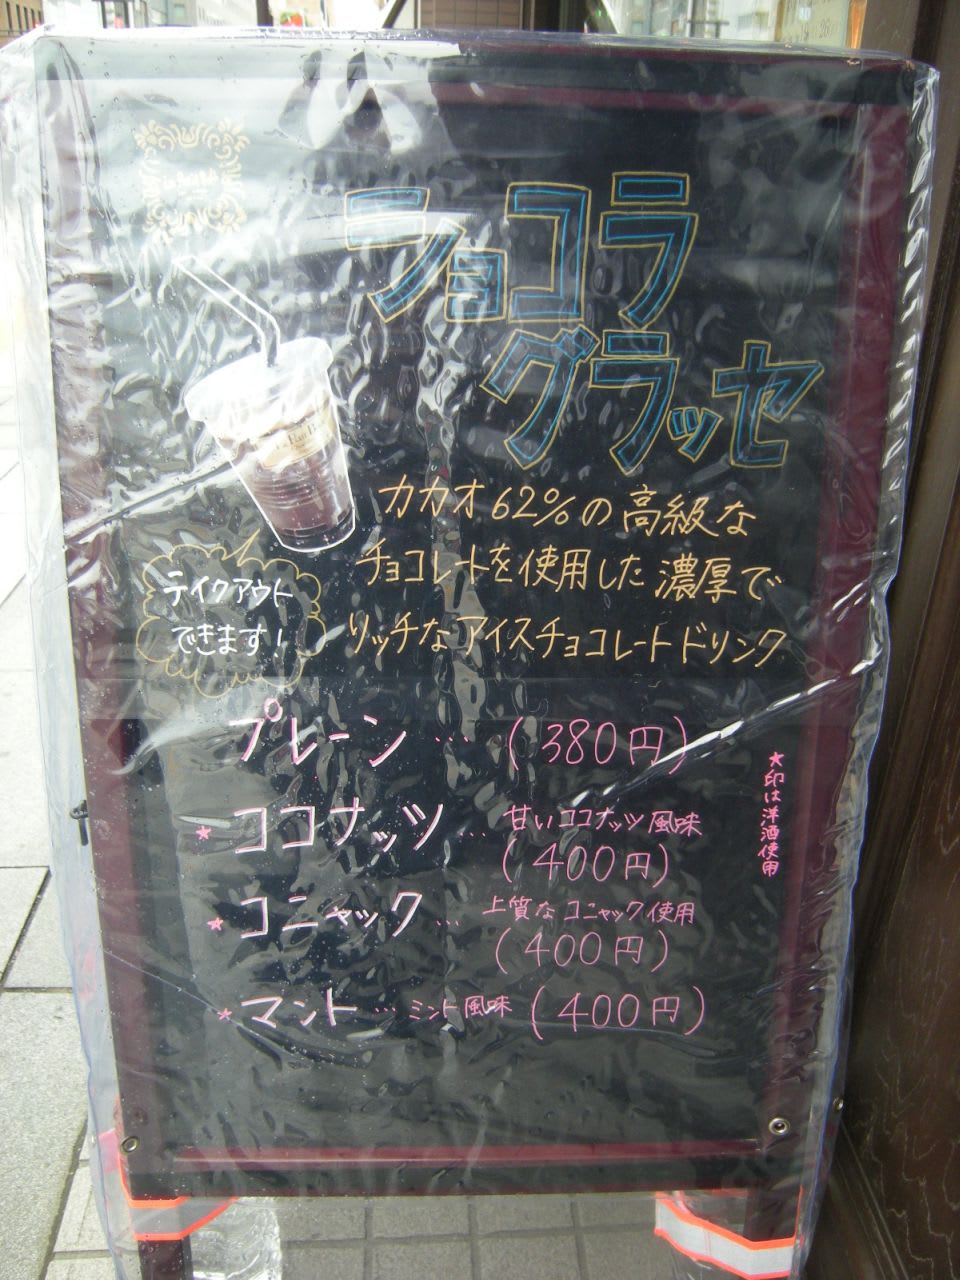 ショコラ
グラッセ
カカオ62%の高級な
チョコレートを使用した濃厚で
リッチなアイスチョコレートドリンク
テイクアウト
できます!
プレーン… (380円)
★ココナッツ… 甘いココナッツ風味
(400円)
★コニャック… 上質なコニャック使用
(400円)
★マント… ミント風味 (400円)
★印は洋酒使用